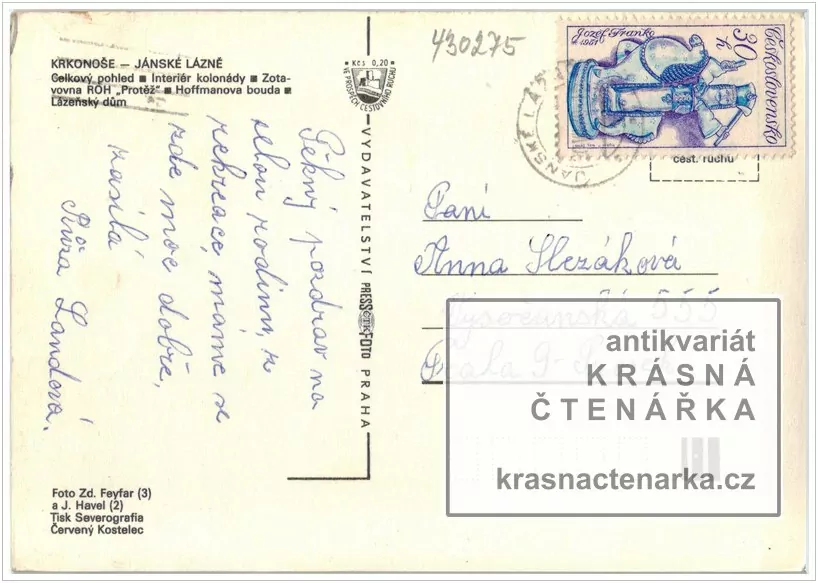 KRKONOŠE — JÁNSKÉ LÁZNĚ
Celkový pohled ■ Interiér kolonády ■ Zota-
vovna ROH „Protěž" ■ Hoffmanova bouda ■
Lázeňský dům
Kčs 0,20
VE PROSPĚCH CESTOVNÍHO RUCHU
430275
Jozef Franko
1921
30 h
Československo
JANSKÉ LÁ
cest. ruchu
Pěkný pozdrav na
celou rodinu, z
rekreace, máme se
zde moc dobře,
zasílá
Růža Landová.
VYDAVATELSTVÍ PRESSFOTO PRAHA
ČTK
Paní
Anna Slezáková
Vysočanská 555
Praha 9 -
antikvariát
KRÁSNÁ
ČTENÁŘKA
krasnactenarka.cz
Foto Zd. Feyfar (3)
a J. Havel (2)
Tisk Severografia
Červený Kostelec